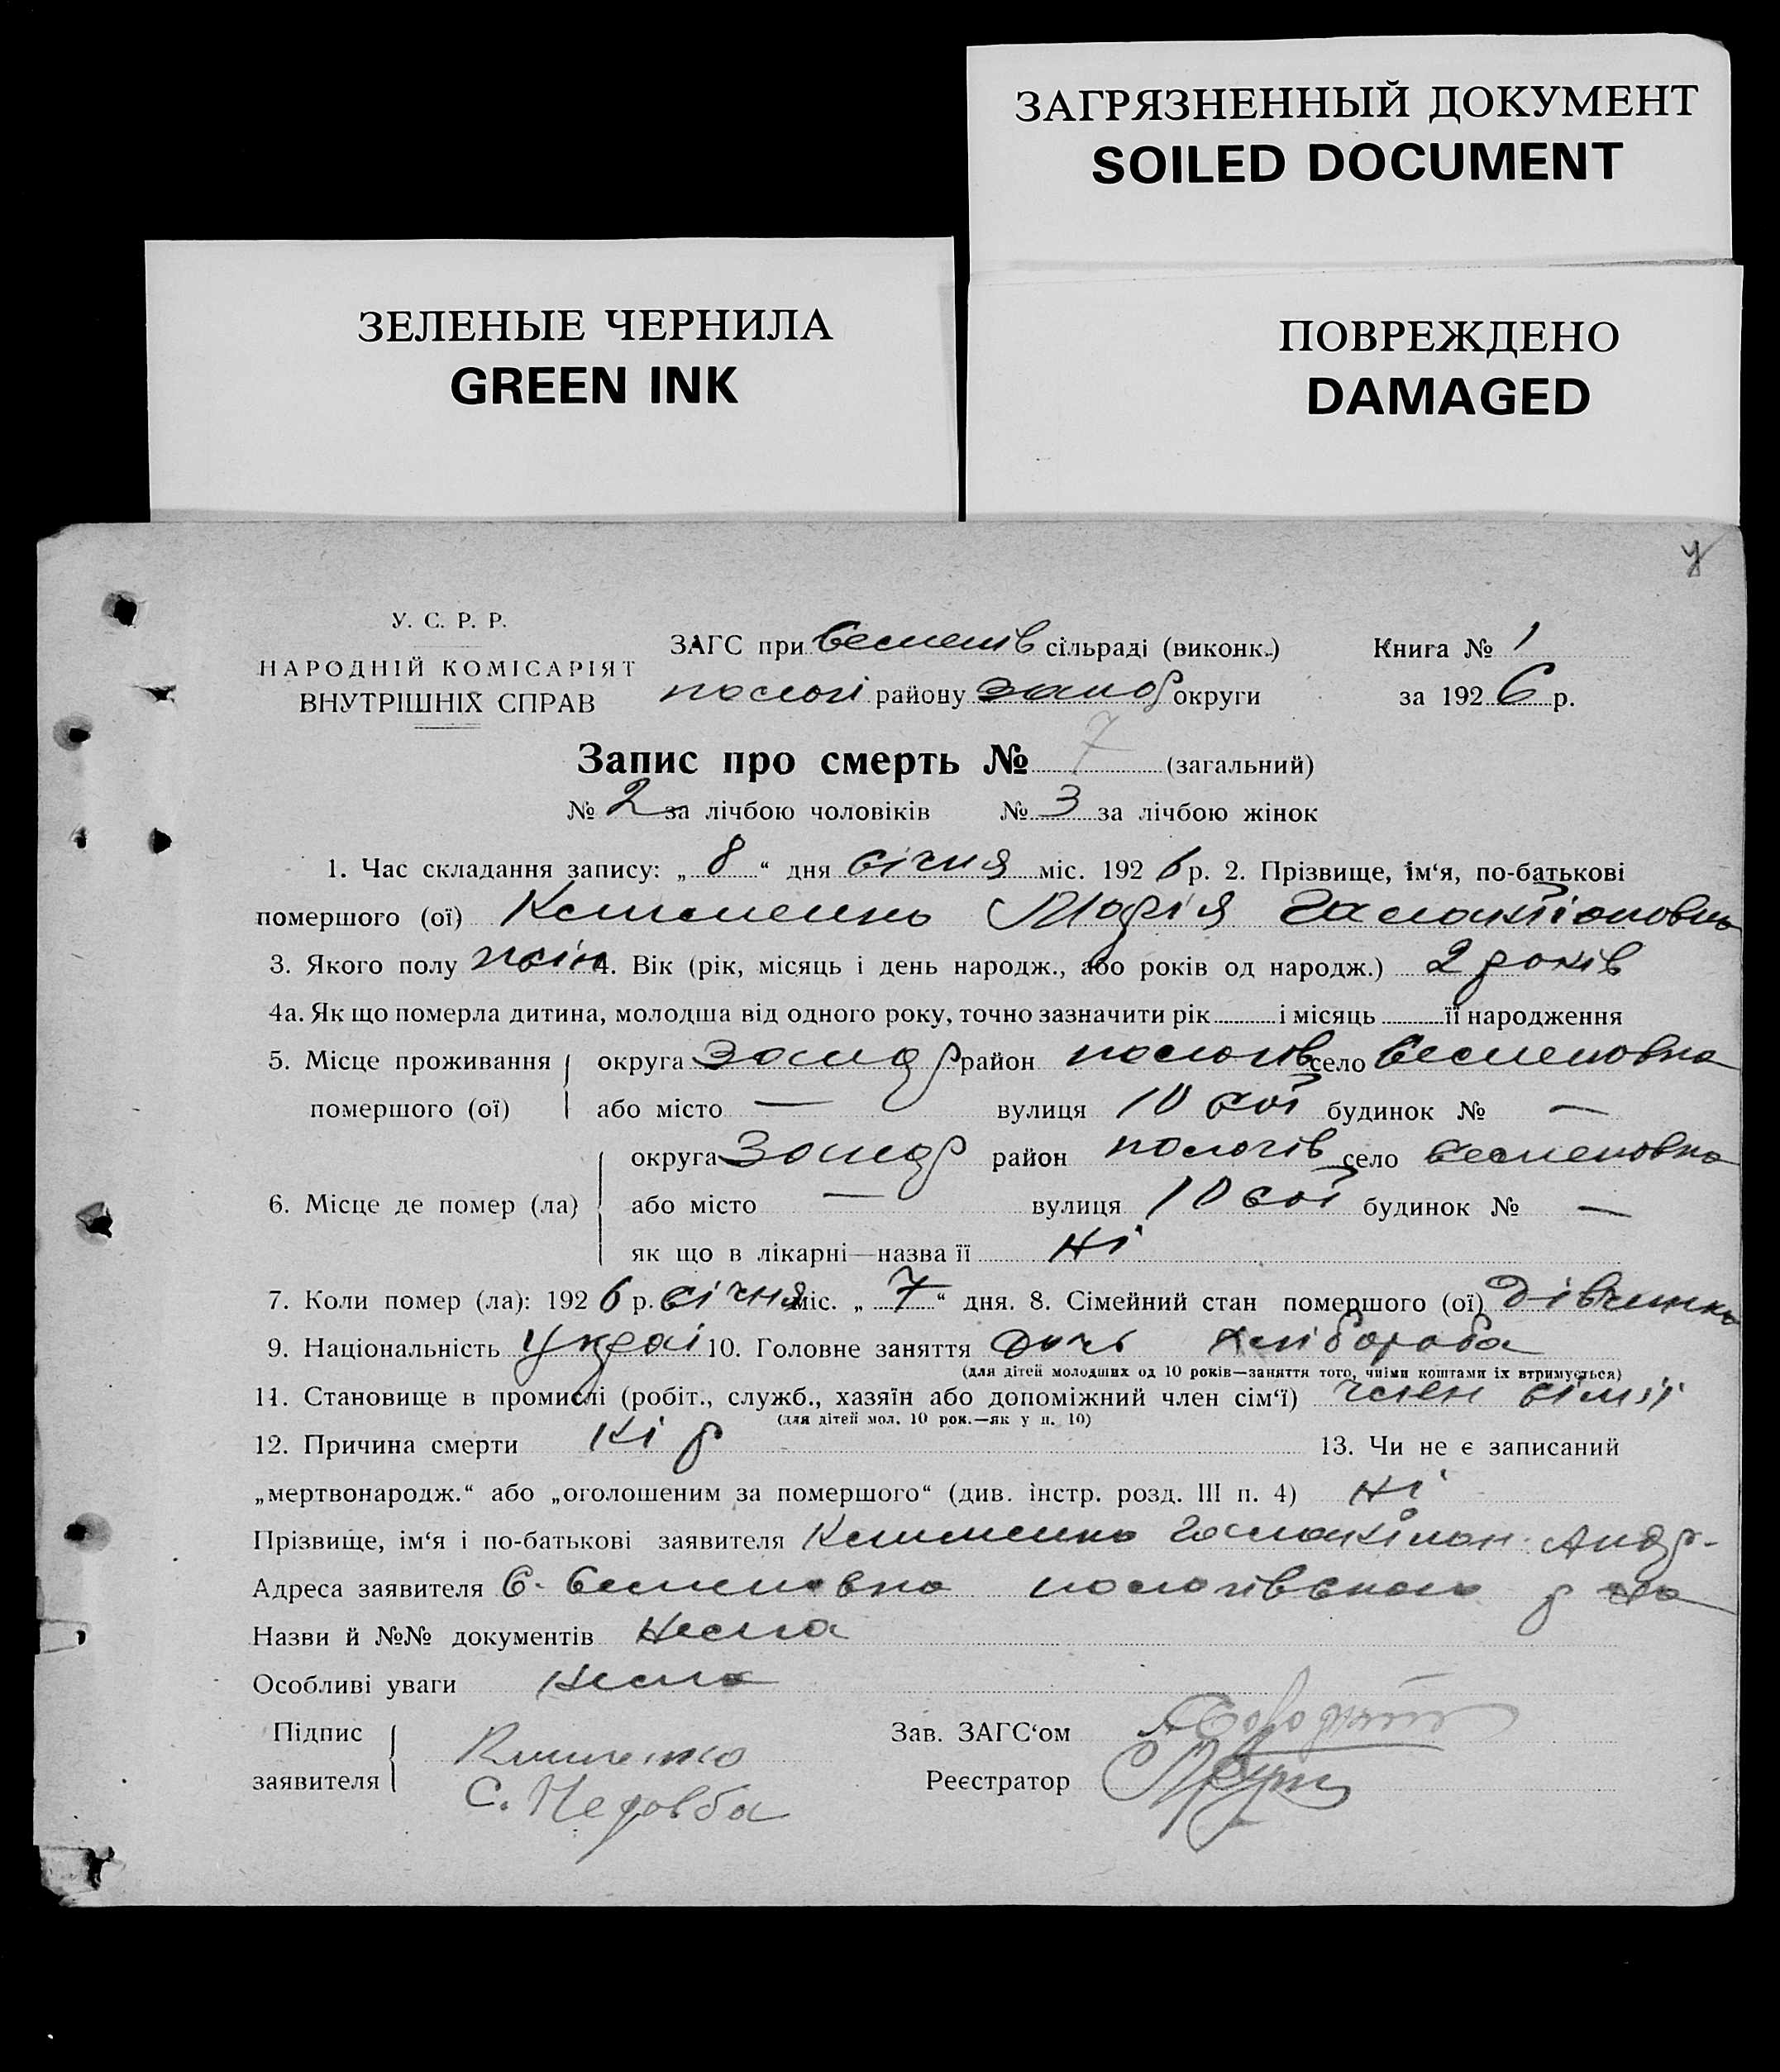 ЗАГРЯЗНЕННЫЙ ДОКУМЕНТ
SOILED DOCUMENT
ЗЕЛЕНЫЕ ЧЕРНИЛА
GREEN INK
ПОВРЕЖДЕНО
DAMAGED
У. С. Р. Р.
НАРОДНІЙ КОМІСАРІЯТ
ВНУТРІШНІХ СПРАВ
ЗАГС при сільраді (виконк.) Книга № 1
пологі району запор округи за 1926 р.
Запис про смерть № 7 (загальний)
№ 2 за лічбою чоловіків № 3 за лічбою жінок
1. Час складання запису: „ 8 “ дня січня міс. 1926 р. 2. Прізвище, ім‘я, по-батькові
помершого (ої) Клименко Марія
3. Якого полу жін 4. Вік (рік, місяць і день народж., або років од народж.) 2 років
4а. Як що померла дитина, молодша від одного року, точно зазначити рік і місяць її народження
5. Місце проживання округа Запор район пологів село Семеновка
помершого (ої) або місто — вулиця 10 сот будинок № —
округа Запор район пологів село Семеновка
6. Місце де помер (ла) або місто — вулиця 10 сот будинок № —
як що в лікарні—назва її Ні
7. Коли помер (ла): 1926 р. січня міс. „ 7 “ дня. 8. Сімейний стан помершого (ої) дівчинка
9. Національність Украї 10. Головне заняття дочь хлібороба
(для дітей молодших од 10 років—заняття того, чиїми коштами їх втримується)
11. Становище в промислі (робіт., служб., хазяїн або допоміжний член сім‘ї) член сімії
(для дітей мол. 10 рок.—як у п. 10)
12. Причина смерти Кір 13. Чи не є записаний
„мертвонародж.“ або „оголошеним за помершого“ (див. інстр. розд. III п. 4) Ні
Прізвище, ім‘я і по-батькові заявителя Клименко Андр.
Адреса заявителя С. Семеновка пологівського р на
Назви й №№ документів Нема
Особливі уваги Нема
Підпис Зав. ЗАГС‘ом
Клименко
заявителя Реєстратор
С.